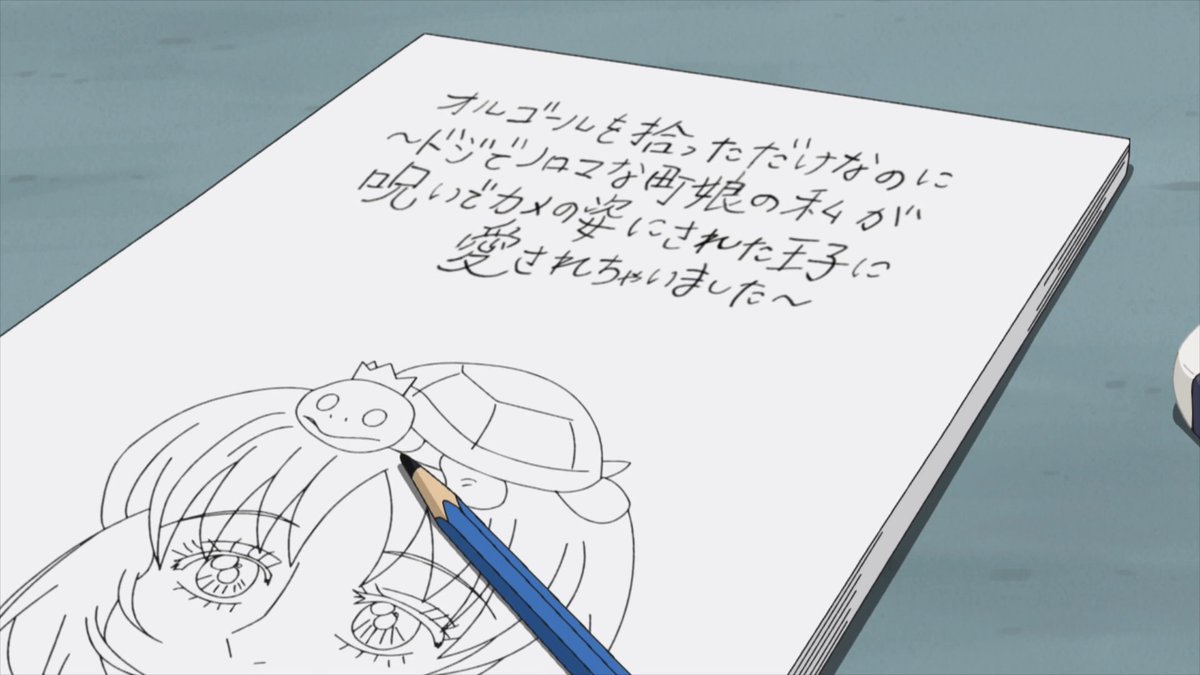 オルゴールを拾っただけなのに
～ドジでノロマな町娘の私が
呪いでカメの姿にされた王子に
愛されちゃいました～